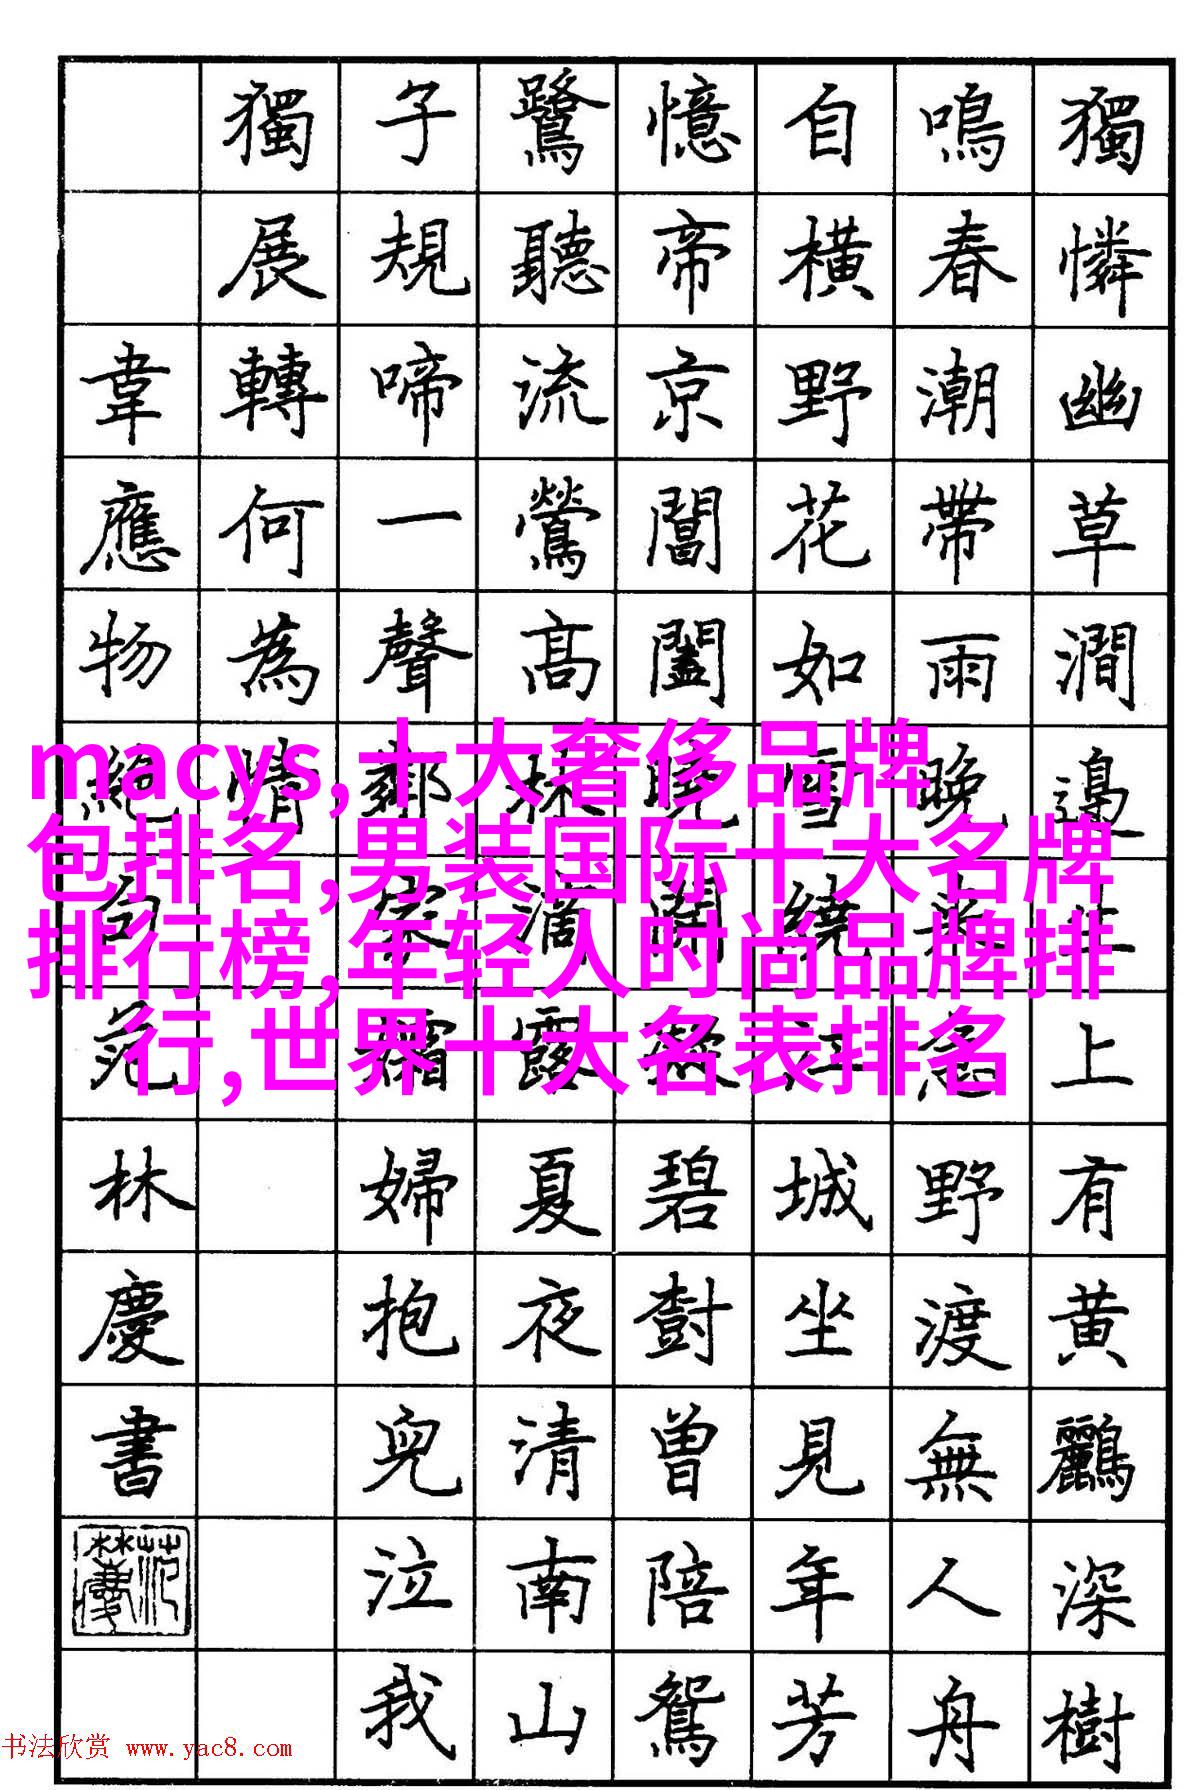 獨憐幽草澗邊生上有黄鸝深樹
鳴春潮帶雨晚來急野渡無人舟
自橫野花如雪繞江城坐見年芳
憶帝京閶闔曉開凝碧樹曾陪鴛
鷺聽流鶯高林滴露夏夜清南山
子規啼一聲鄰家孀婦抱兒泣我
獨展轉何為情
韋應物絕句范林慶書
macys,十大奢侈品牌
包排名,男装国际十大名牌
排行榜,年轻人时尚品牌排
行,世界十大名表排名
书法欣赏 www.yac8.com